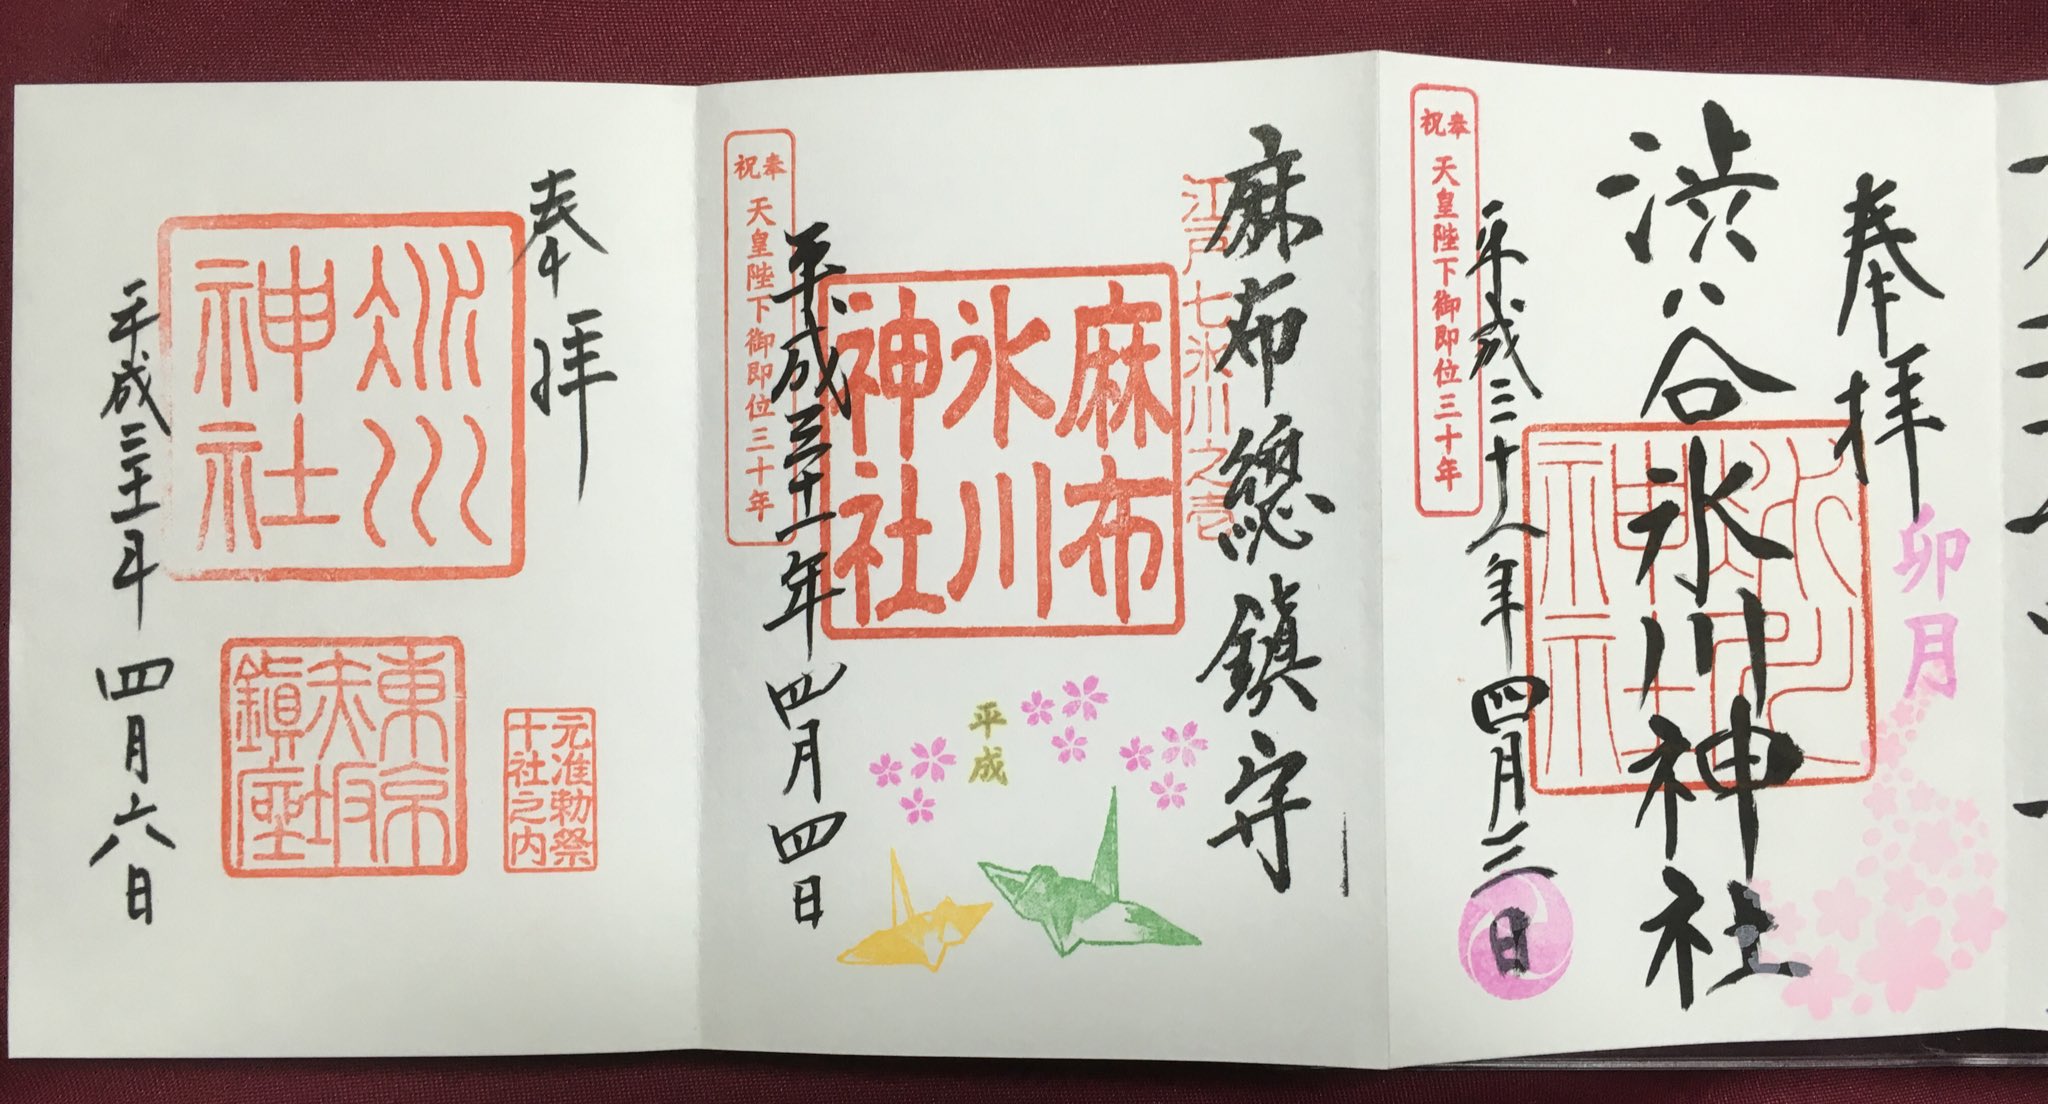 奉拝
渋谷氷川神社
卯月
奉祝 天皇陛下御即位三十年
四月三日
氷川神社
麻布總鎮守
江戸七氷川之壱
麻布
氷川
神社
平成三十一年四月四日
奉祝 天皇陛下御即位三十年
平成
奉拝
氷川
神社
東京
赤坂
鎮座
元准勅祭
十社之内
平成三十一年四月六日